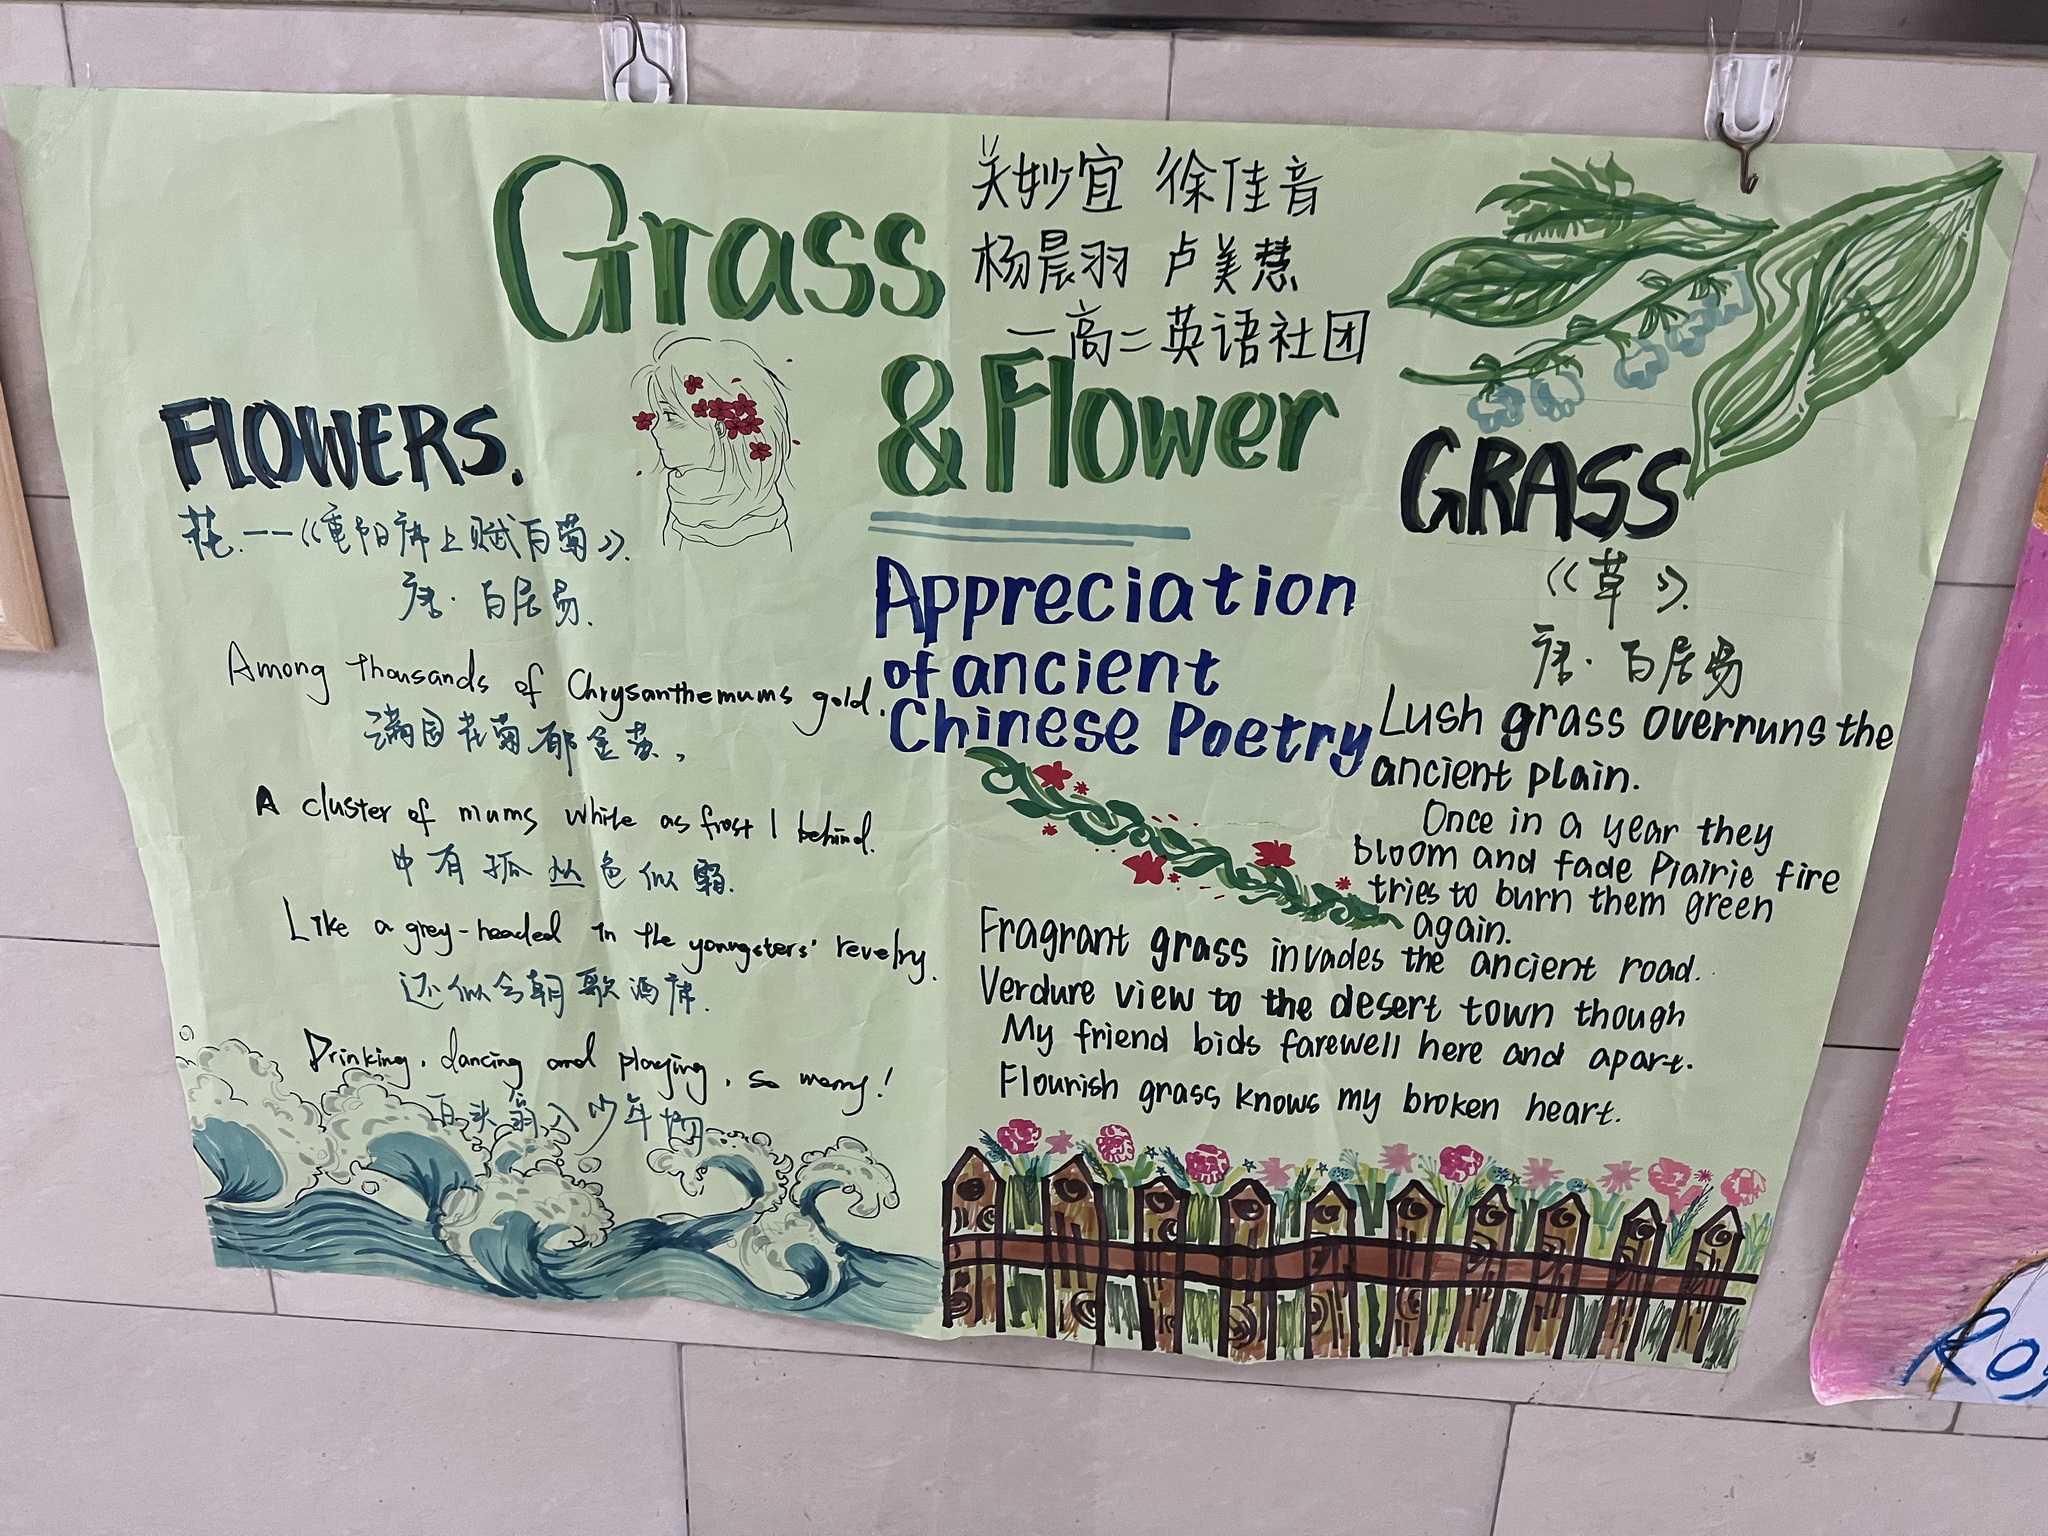 Grass
& Flower
关妙宜 徐佳音
杨晨羽 卢美慧
—高二英语社团
Appreciation
of ancient
Chinese Poetry
FLOWERS.
花.——《重阳席上赋白菊》.
唐·白居易.
Among thousands of Chrysanthemums gold.
满园花菊郁金黄,
A cluster of mums white as frost I behind.
中有孤丛色似霜.
Like a grey-headed in the youngsters' revelry.
还似今朝歌酒席.
Drinking, dancing and playing, so merry!
白头翁入少年场
GRASS
《草》.
唐·白居易
Lush grass overruns the
ancient plain.
Once in a year they
bloom and fade Prairie fire
tries to burn them green
again.
Fragrant grass invades the ancient road.
Verdure view to the desert town though
My friend bids farewell here and apart.
Flourish grass knows my broken heart.